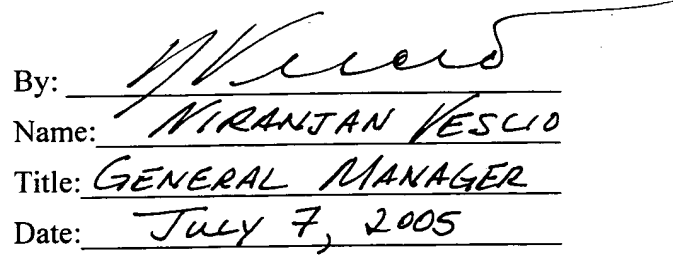 By:
Name: NIRANJAN VESCIO
Title: GENERAL MANAGER
Date: JULY 7, 2005